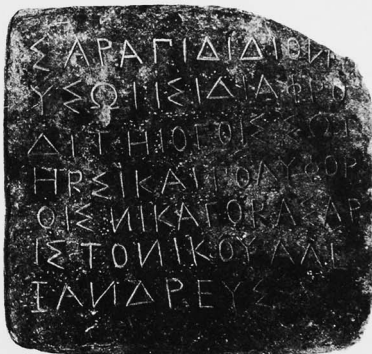 ΣΑΡΑΠΙΔΙΔΙΟΝ
ΥΣΩΙΙΣΙΔΙΑΦΡΟ
ΔΙΤΗΙΘΕΟΙΣΣΩΤ
ΗΡΣΙΚΑΙΠΟΛΥΦΟΡ
ΟΙΣΝΙΚΑΓΟΡΑΣΑΡ
ΙΣΤΟΝΙΚΟΥΑΛΕ
ΞΑΝΔΡΕΥΣ